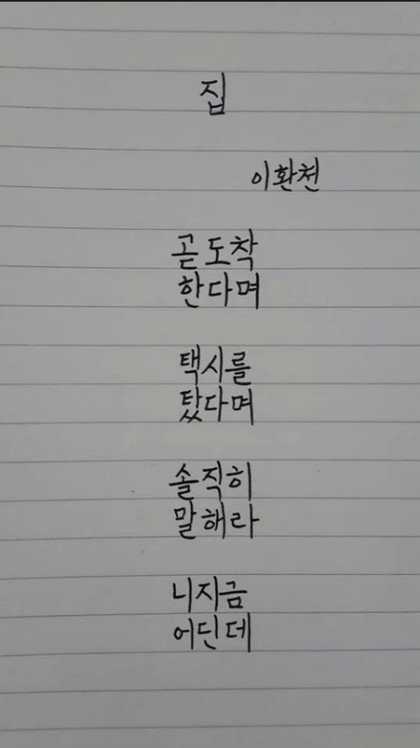 집
이환천
곧 도착
한다며
택시를
탔다며
솔직히
말해라
니지금
어딘데